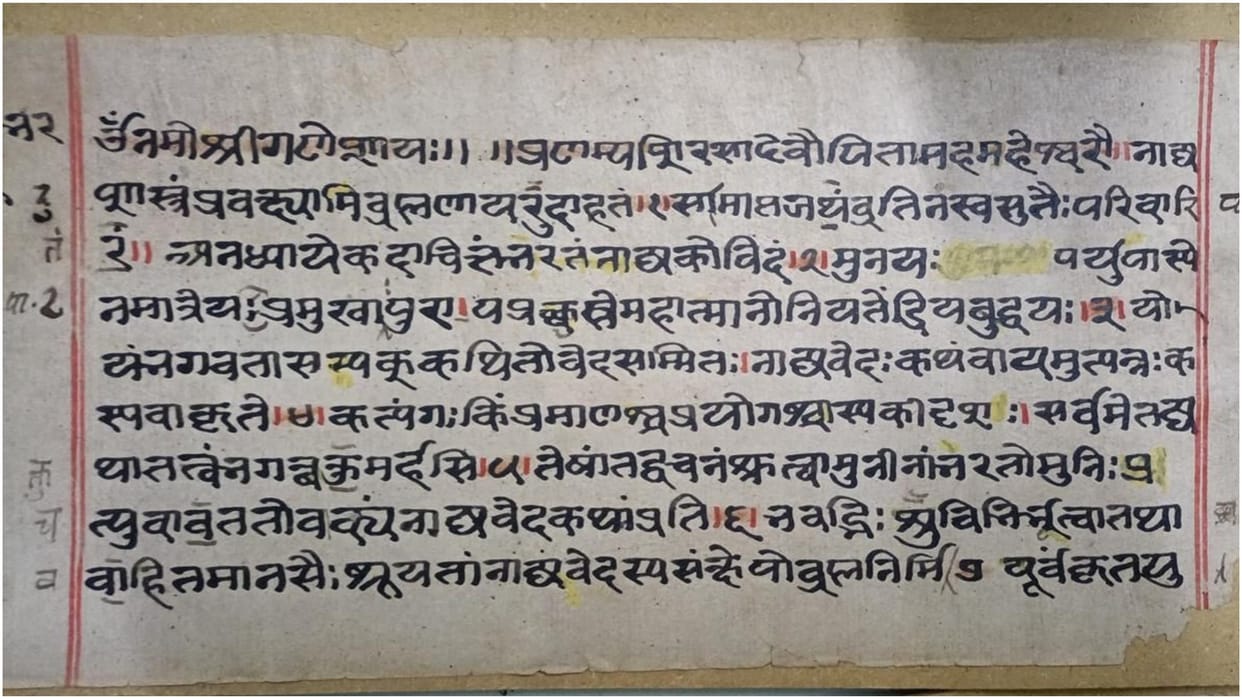 ॐनमोश्रीगणेशायः॥ ॥प्रणम्यशिरसादेवौपितामहमहेश्वरौ॥नाट्य
शास्त्रंप्रवक्ष्यामिब्रह्मणायदुदाहृतं।१।समाप्तजप्यंव्रतिनंस्वसुतैःपरिवारि
तं॥अनध्यायेकदाचित्तंभरतंनाट्यकोविदं।२।मुनयः पर्युपास्ये
नमात्रेयःप्रमुखापुरा।पप्रच्छुस्तेमहात्मानोनियतेंद्रियबुद्धयः।३।यो
यंभगवतासम्यक्कथितोवेदसम्मितः।नाट्यवेदःकथंवायमुत्पन्नःक
स्यवाकृते।४।कत्यंगःकिंप्रमाणश्चप्रयोगश्चास्यकीदृशः।सर्वमेतद्य
थातत्त्वंभगवन्वक्तुमर्हसि।५।तेषांतद्वचनंश्रुत्वामुनीनांभरतोमुनिः।प्र
त्युवाचततोवाक्यंनाट्यवेदकथांप्रति।६।भवद्भिःशुचिभिर्भूत्वातथा
वाहितमानसैः।श्रूयतांनाट्यवेदस्यसंक्षेपोब्रह्मनिर्मि पूर्वंकृतयु